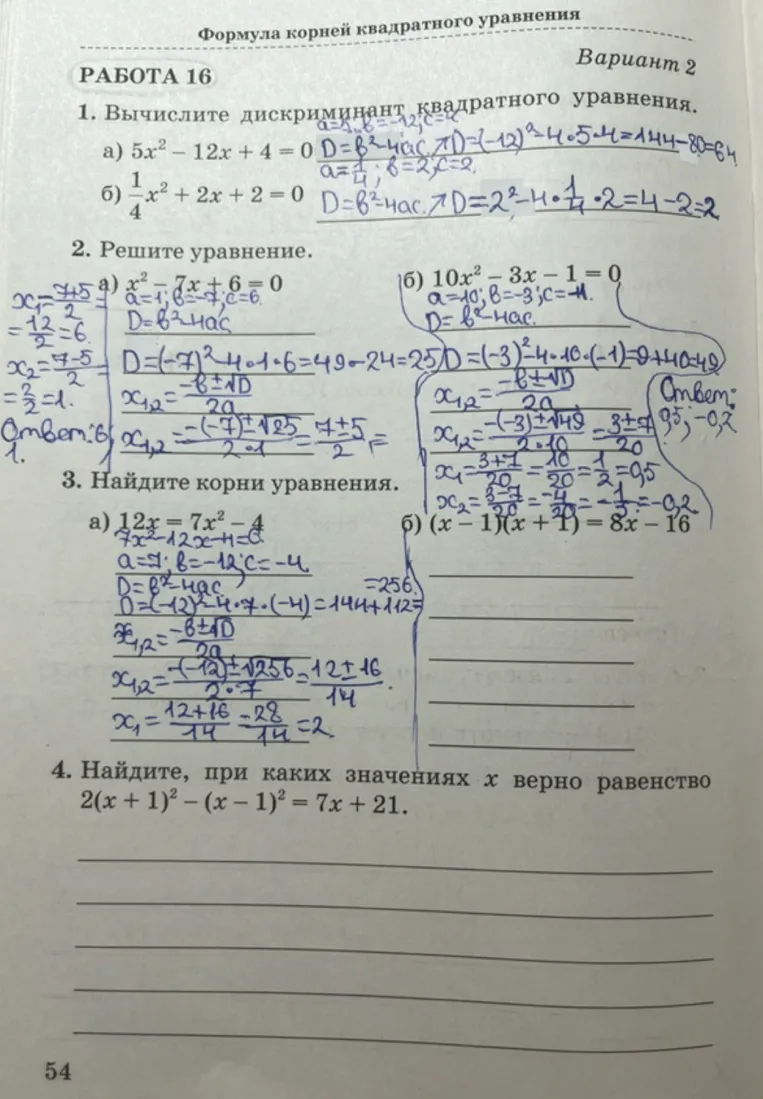 Формула корней квадратного уравнения
Вариант 2
РАБОТА 16
1. Вычислите дискриминант квадратного уравнения.
a=5; b=-12; c=4.
а) 5x² – 12x + 4 = 0 D=b²-4ac. ↗D=(-12)²-4•5•4=144-80=64
a=1/4; b=2; c=2.
б) 1/4 x² + 2x + 2 = 0 D=b²-4ac. ↗D=2²-4•1/4•2=4-2=2
2. Решите уравнение.
а) x² – 7x + 6 = 0
a=1; b=-7; c=6.
D=b²-4ac
D=(-7)²-4•1•6=49-24=25
x1,2=-b±√D/2a
x1,2=-(-7)±√25/2•1=7±5/2=
x1=7+5/2=
=12/2=6.
x2=7-5/2=
=2/2=1.
Ответ: 6;
1.
б) 10x² – 3x – 1 = 0
a=10; b=-3; c=-1.
D=b²-4ac.
D=(-3)²-4•10•(-1)=9+40=49
x1,2=-b±√D/2a
x1,2=-(-3)±√49/2•10=3±7/20
x1=3+7/20=10/20=1/2=0,5
x2=3-7/20=-4/20=-1/5=-0,2
Ответ:
0,5; -0,2
3. Найдите корни уравнения.
а) 12x = 7x² – 4
7x²-12x-4=0
a=7; b=-12; c=-4.
D=b²-4ac
D=(-12)²-4•7•(-4)=144+112=
=256.
x1,2=-b±√D/2a
x1,2=-(-12)±√256/2•7=12±16/14.
x1=12+16/14=28/14=2.
б) (x – 1)(x + 1) = 8x – 16
4. Найдите, при каких значениях x верно равенство
2(x + 1)² – (x – 1)² = 7x + 21.
54